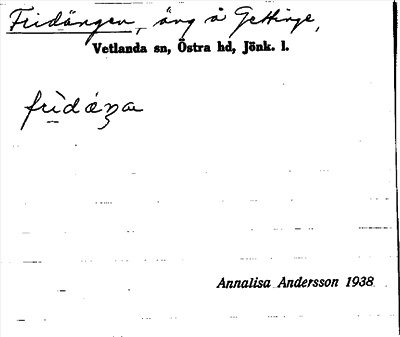 Fridängen, äng å Gettinge,
Vetlanda sn, Östra hd, Jönk. l.
Annalisa Andersson 1938